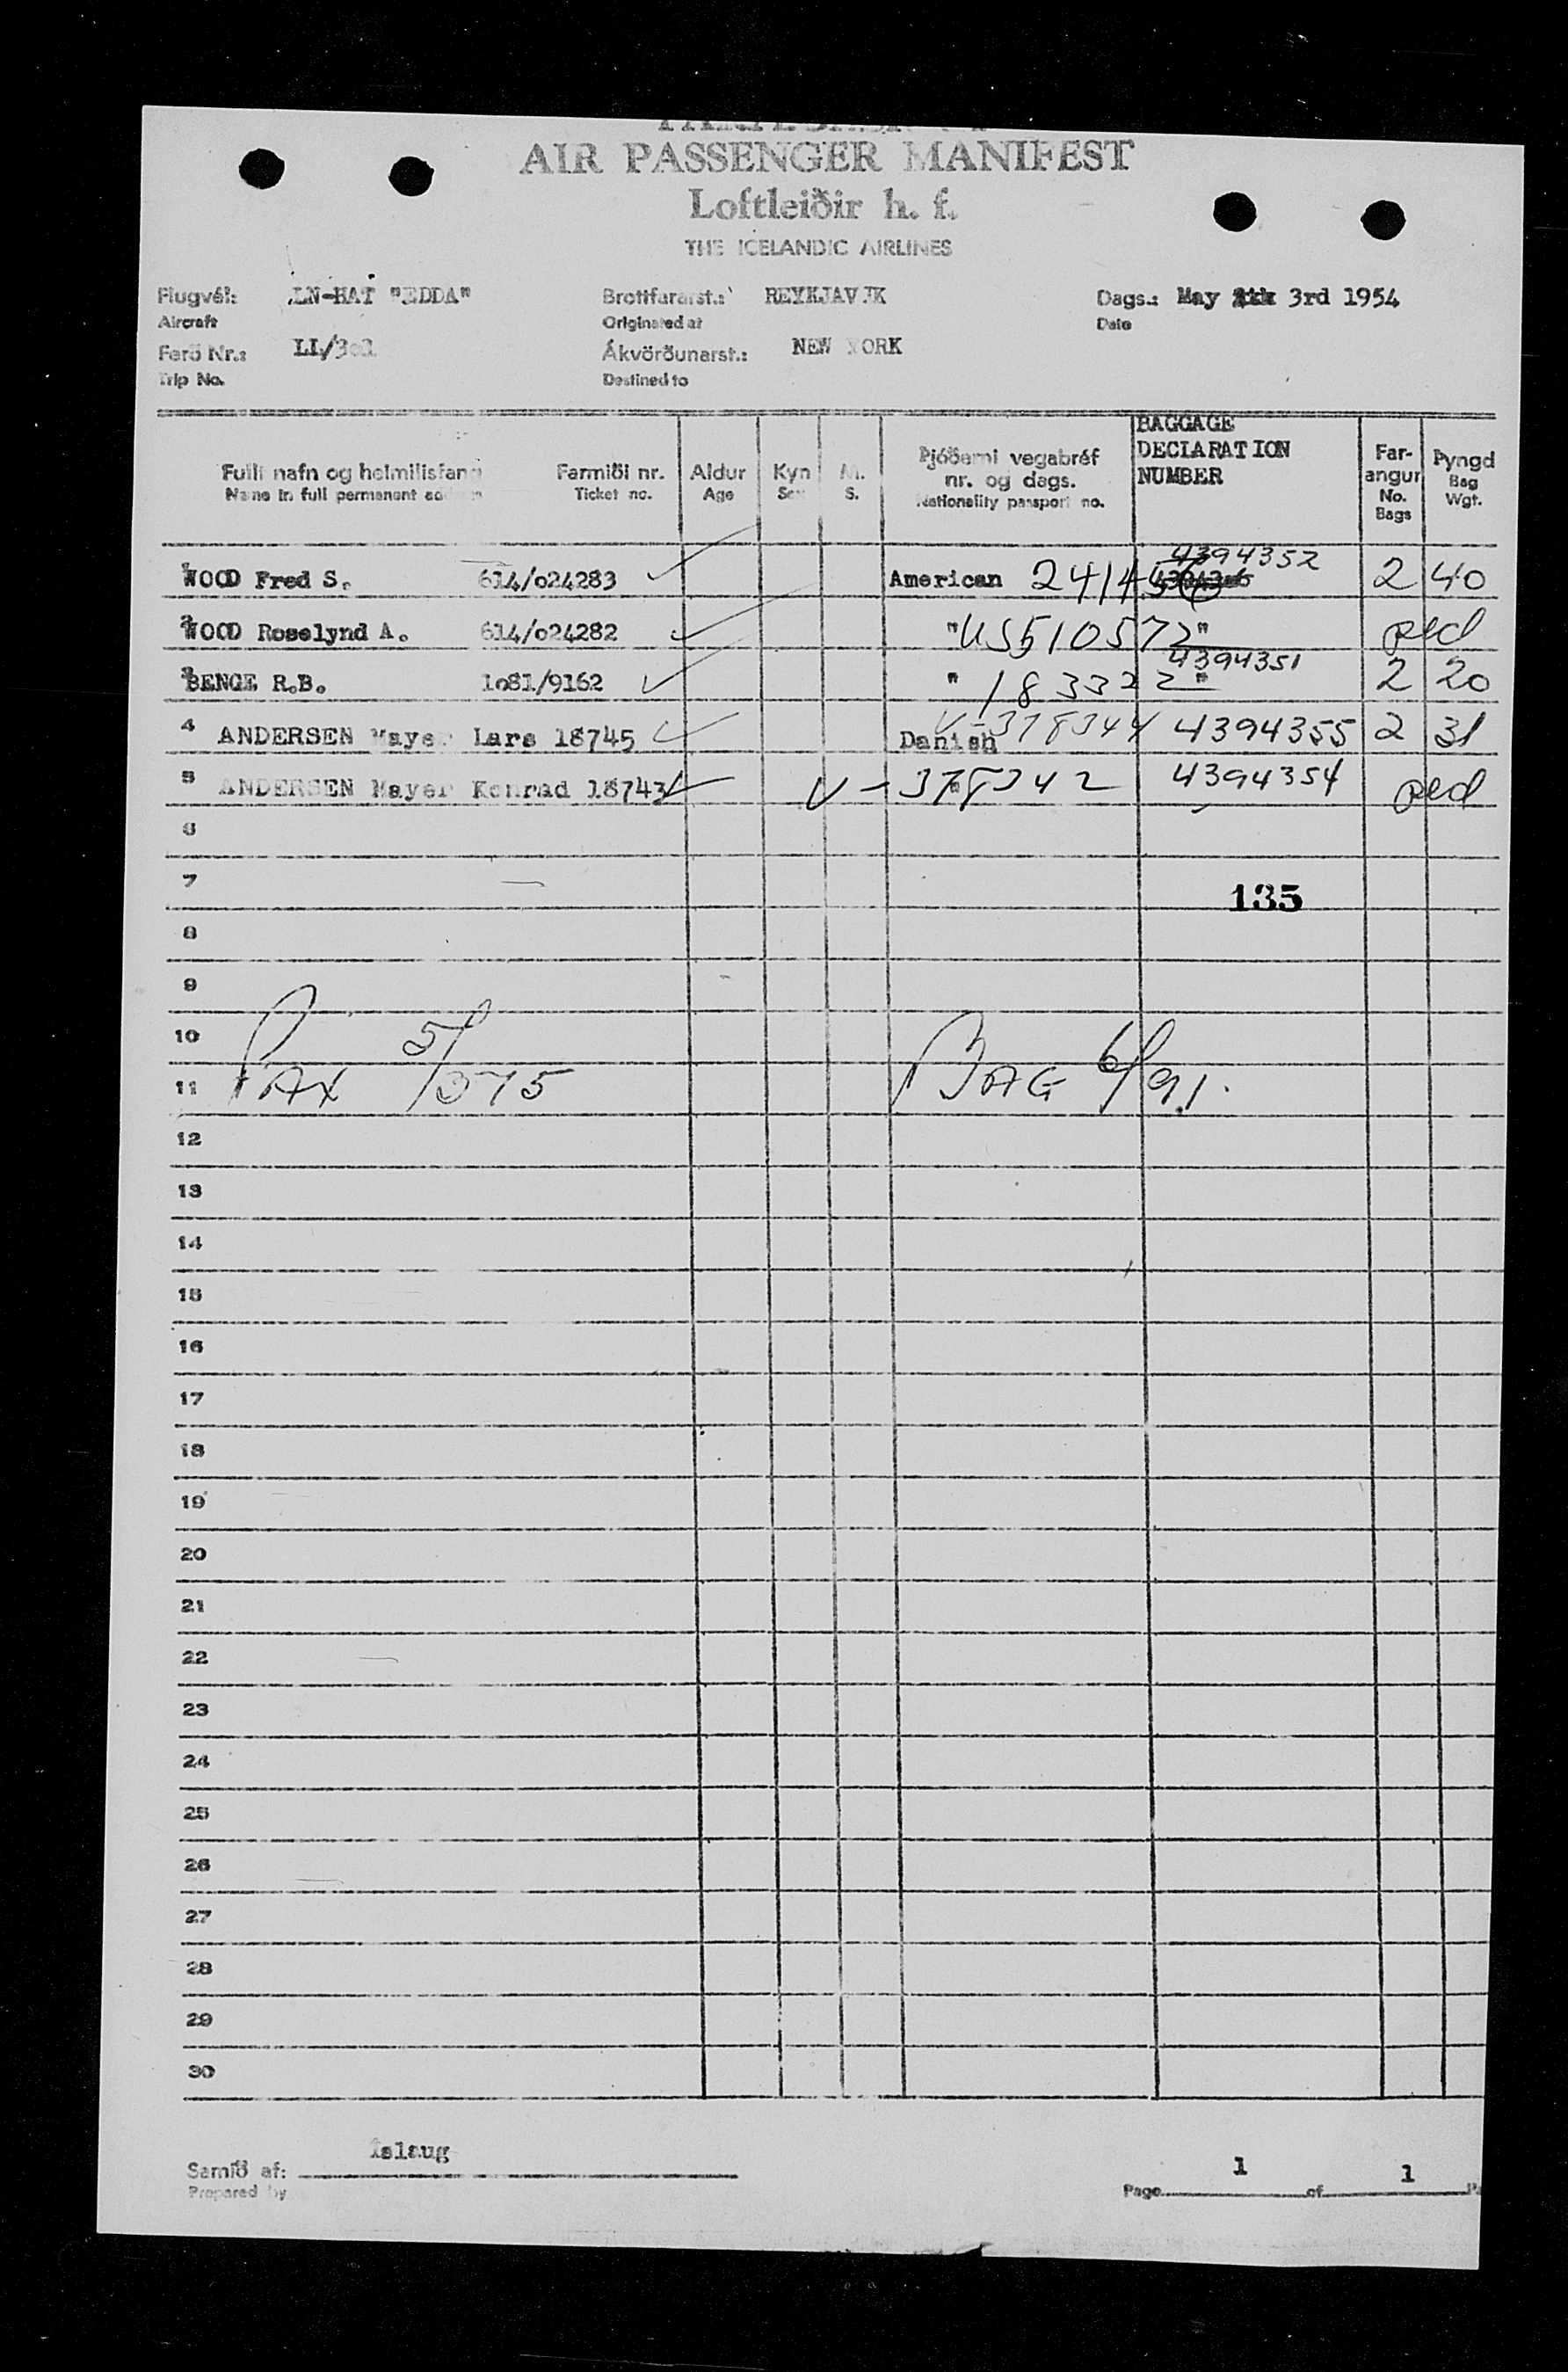 AIR PASSENGER MANIFEST
Loftleiðir h. f.
THE ICELANDIC AIRLINES
Flugvél: LN-HAT "EDDA" Brottfararst.: REYKJAVIK Dags.: May 3rd 1954
Aircraft Originated at Date
Ferð Nr.: LL/301 Ákvörðunarst.: NEW YORK
Trip No. Destined to
Fullt nafn og heimilisfang Farmiði nr. Aldur Kyn M. Þjóðerni vegabréf nr. og dags. BAGGAGE DECLARATION NUMBER Far-angur Þyngd
Name in full permanent Ticket no. Age Sex S. Nationality passport no. No. Bags Bag Wgt.
1 WOOD Fred S. 614/o24283 American 24145 4394352 2 40
2 WOOD Roselynd A. 614/o24282 " US510572 " pld
3 BENGE R.B. 1o81/9162 " 183322 " 4394351 2 20
4 ANDERSEN Mayer Lars 18745 Danish V-378344 4394355 2 31
5 ANDERSEN Mayer Konrad 18743 V-378342 4394354 pld
6
7 135
8
9
10
11 PAX 5/375 BAG 6/91.
12
13
14
15
16
17
18
19
20
21
22
23
24
25
26
27
28
29
30
Samið af: Áslaug
Prepared by
Page 1 of 1